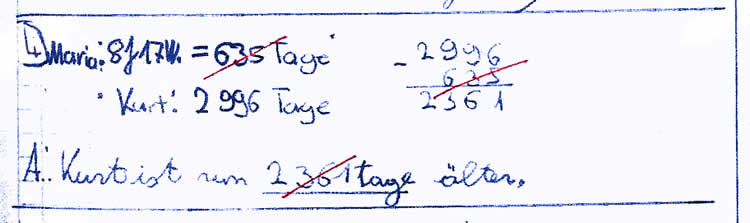 4) Maria: 8J 17W. = 635 Tage
Kurt: 2996 Tage
- 2996
635
2361
A: Kurt ist um 2361 tage älter.